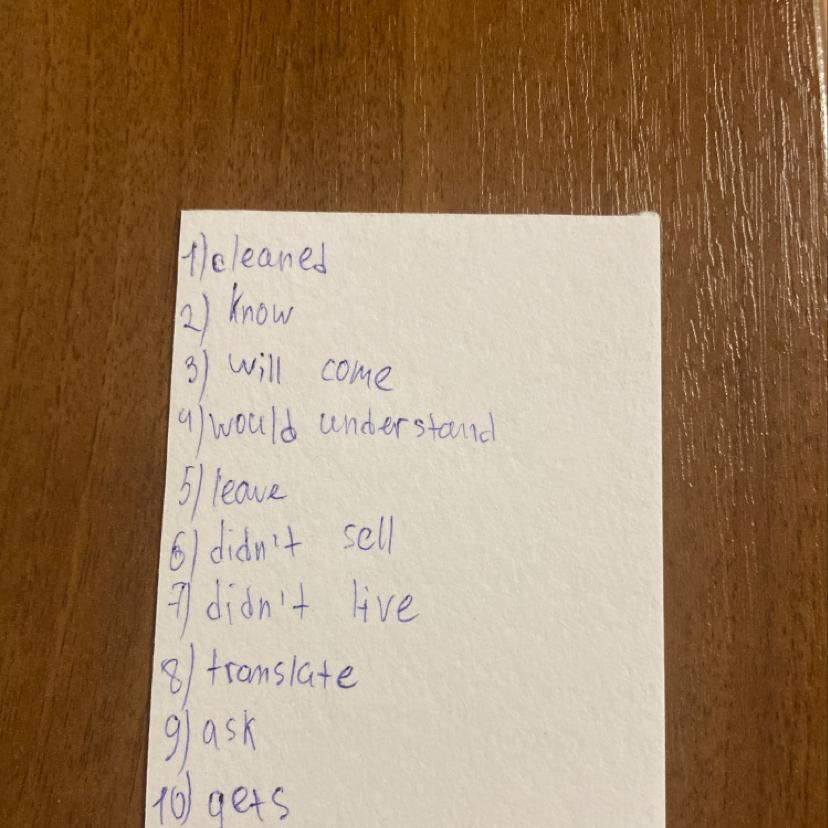 1) cleaned
2) know
3) will come
4) would understand
5) leave
6) didn't sell
7) didn't live
8) translate
9) ask
10) gets